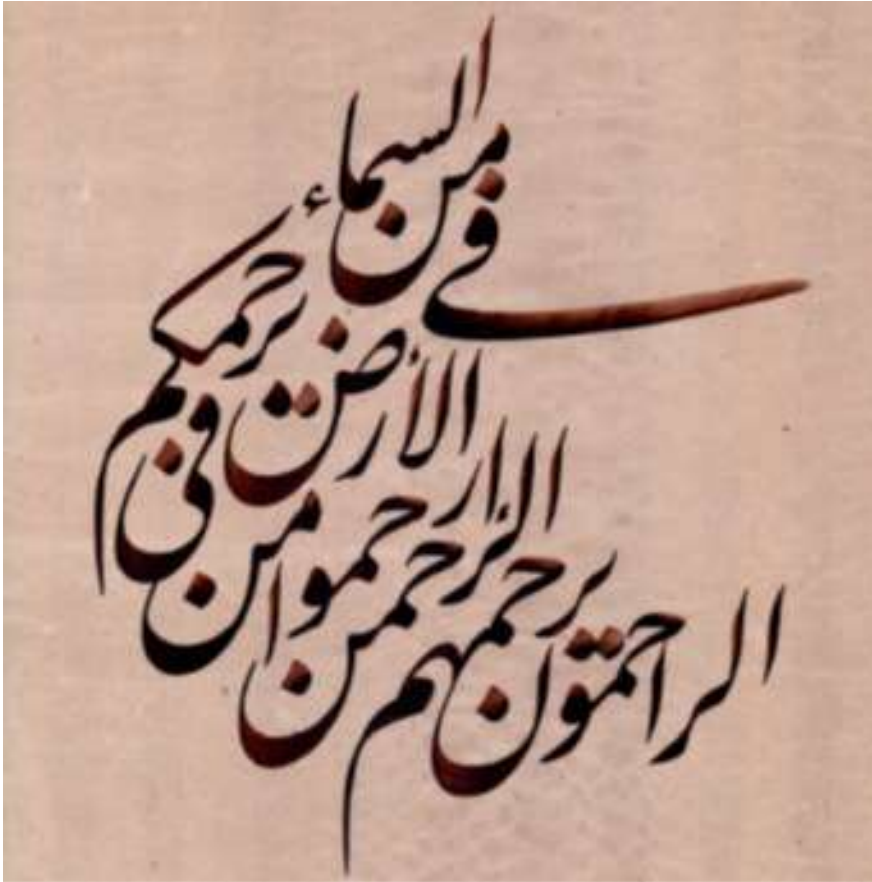 الراحمون يرحمهم
الرحمن ارحموا من
في الأرض يرحمكم
من في السماء